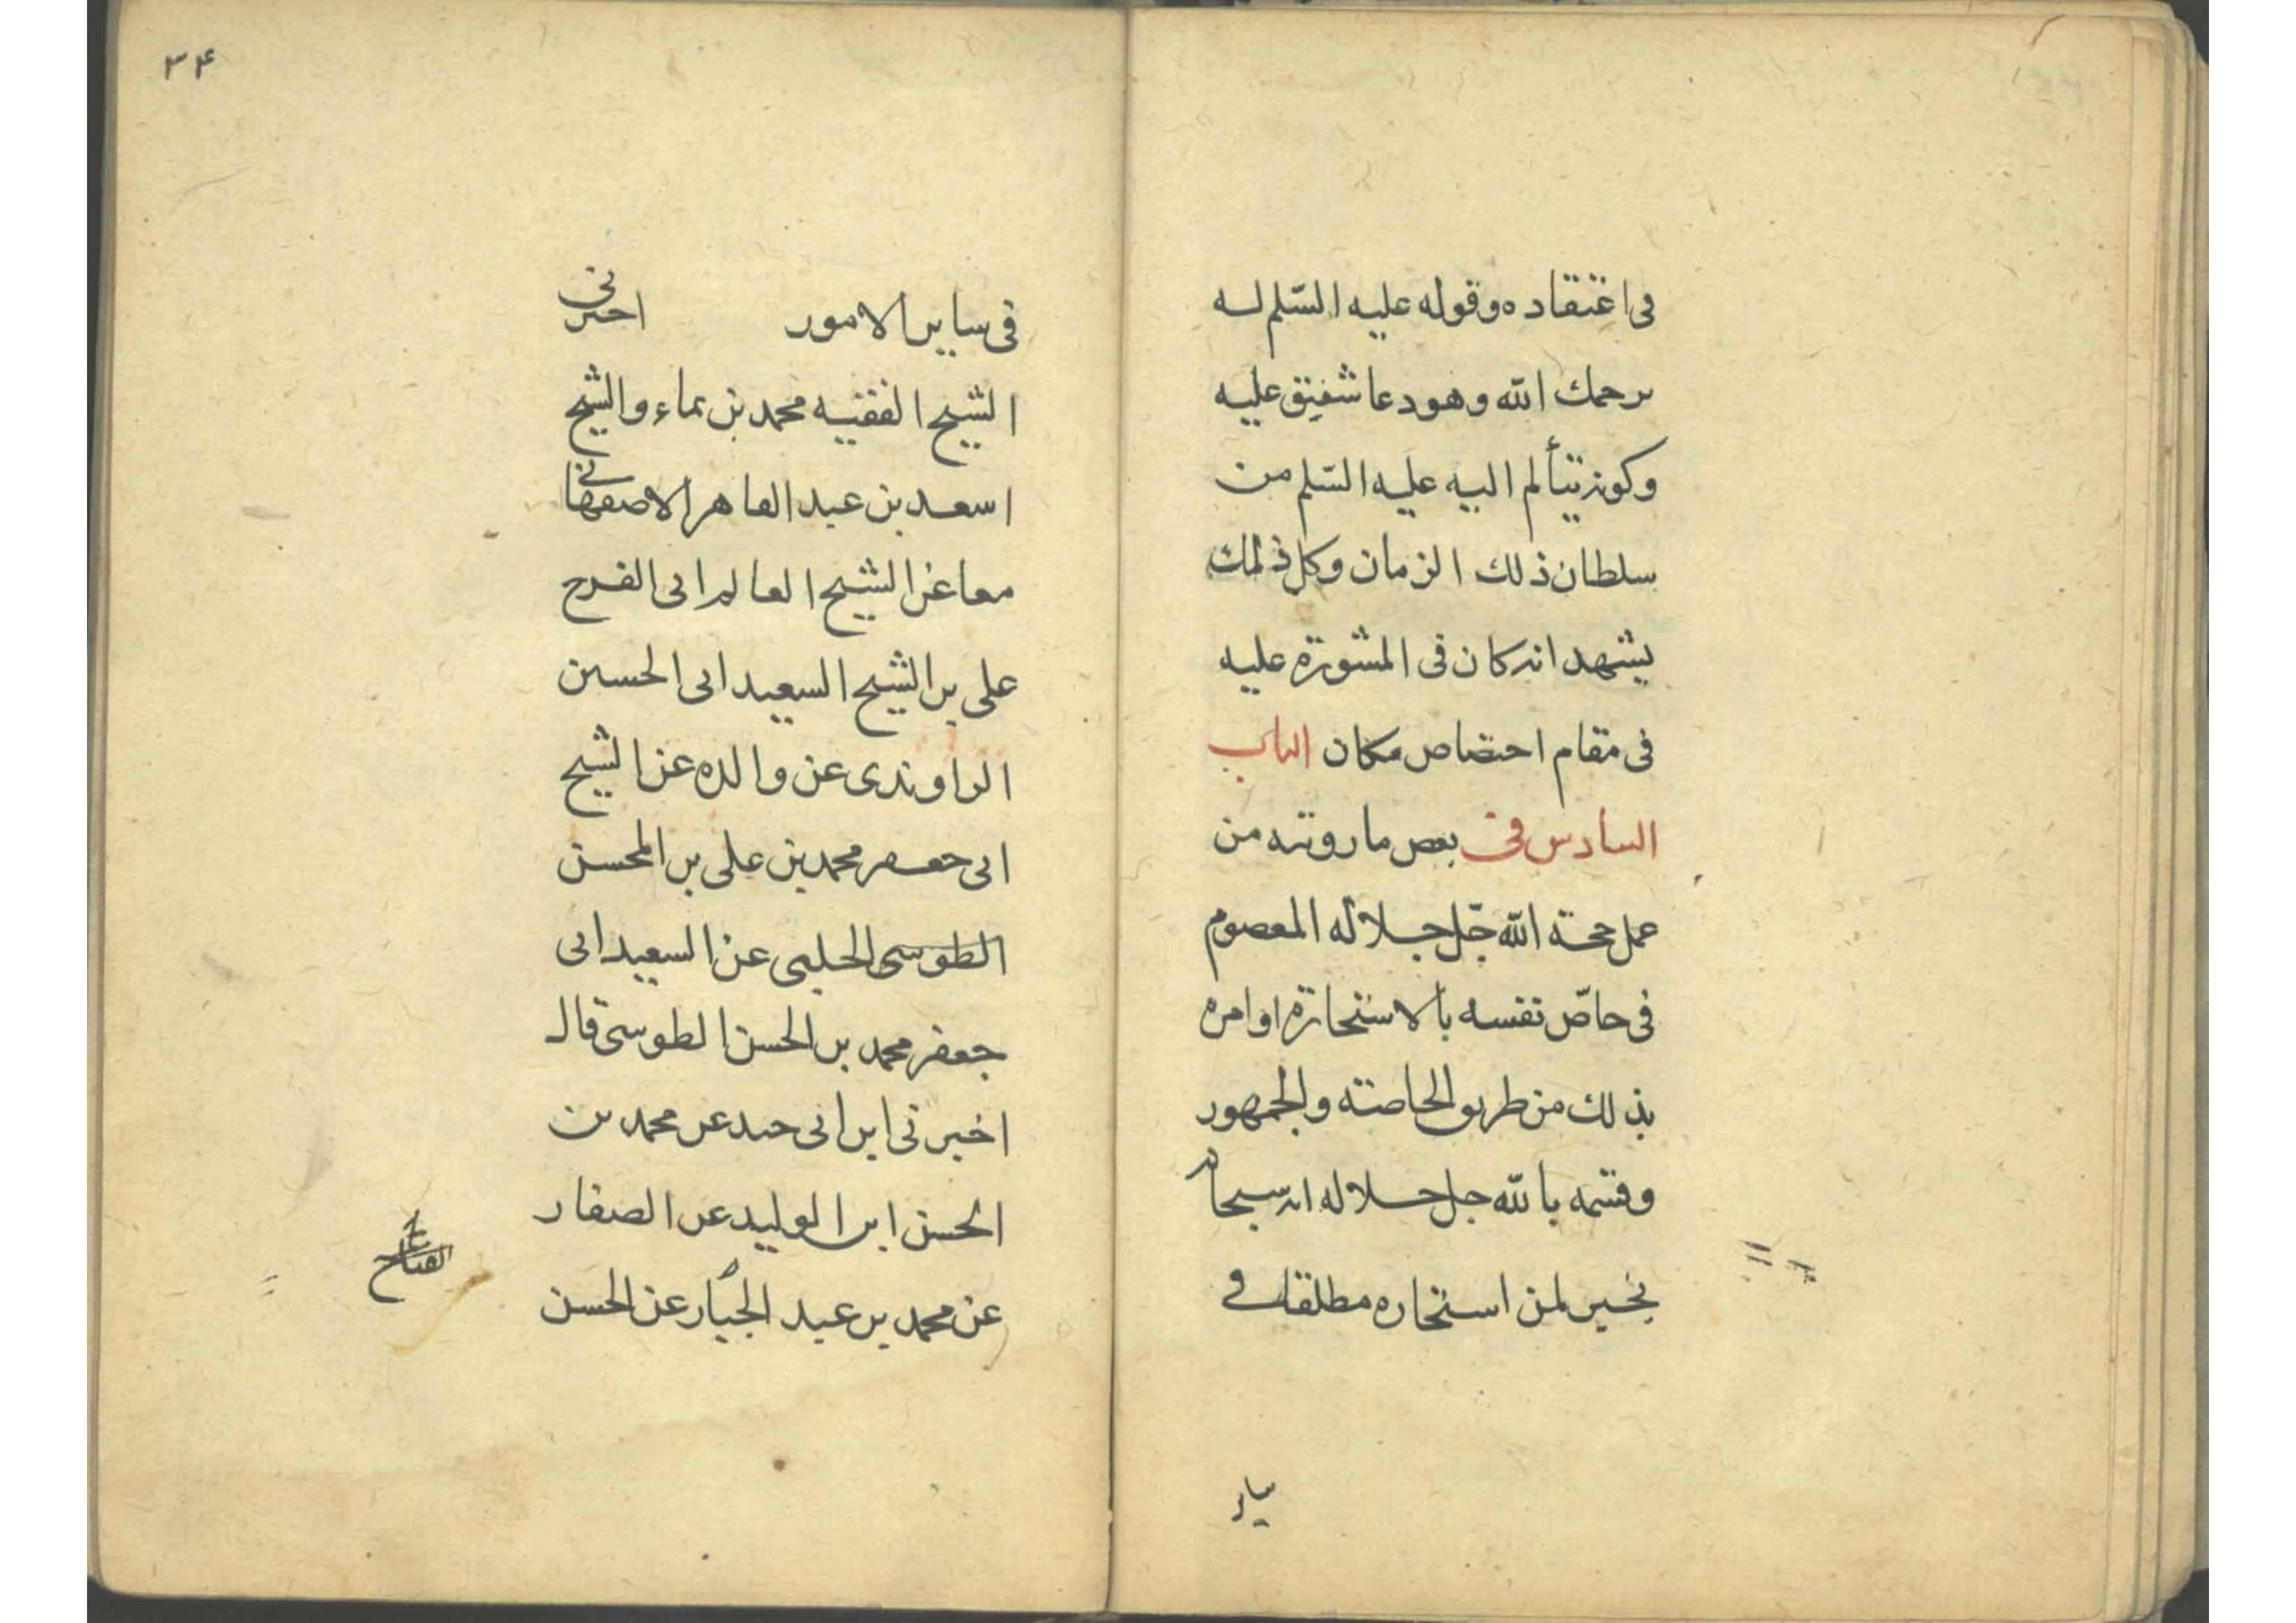 فى اعتقاده وقوله عليه السّلم له
يرحمك الله وهو دعا شفيق عليه
وكونه يتألم اليه عليه السّلم من
سلطان ذلك الزمان وكل ذلك
يشهد انه كان فى المشورة عليه
فى مقام اختصاص مكان الباب
السادس فى بعض ما رويته من
عمل حجة الله جّل جلاله المعصوم
فى خاصّ نفسه بالاستخارة او امره
بذلك من طريق الخاصة والجمهور
وقسمه بالله جل جلاله انه سبحانه
يخير لمن استخاره مطلقا فى
ساير
٣٤
فى ساير الامور اخبرنى
الشيخ الفقيه محمد بن نماء والشيخ
اسعد بن عبد القاهر الاصفهانى
معا عن الشيخ العالم ابى الفرج
على بن الشيخ السعيد ابى الحسين
الراوندى عن والده عن الشيخ
ابى جعفر محمد بن على بن المحسن
الطوسى الحلبى عن السعيد ابى
جعفر محمد بن الحسن الطوسى قال
اخبرنى ابن ابى جيد عن محمد بن
الحسن ابن الوليد عن الصفار
عن محمد بن عبد الجبّار عن الحسن